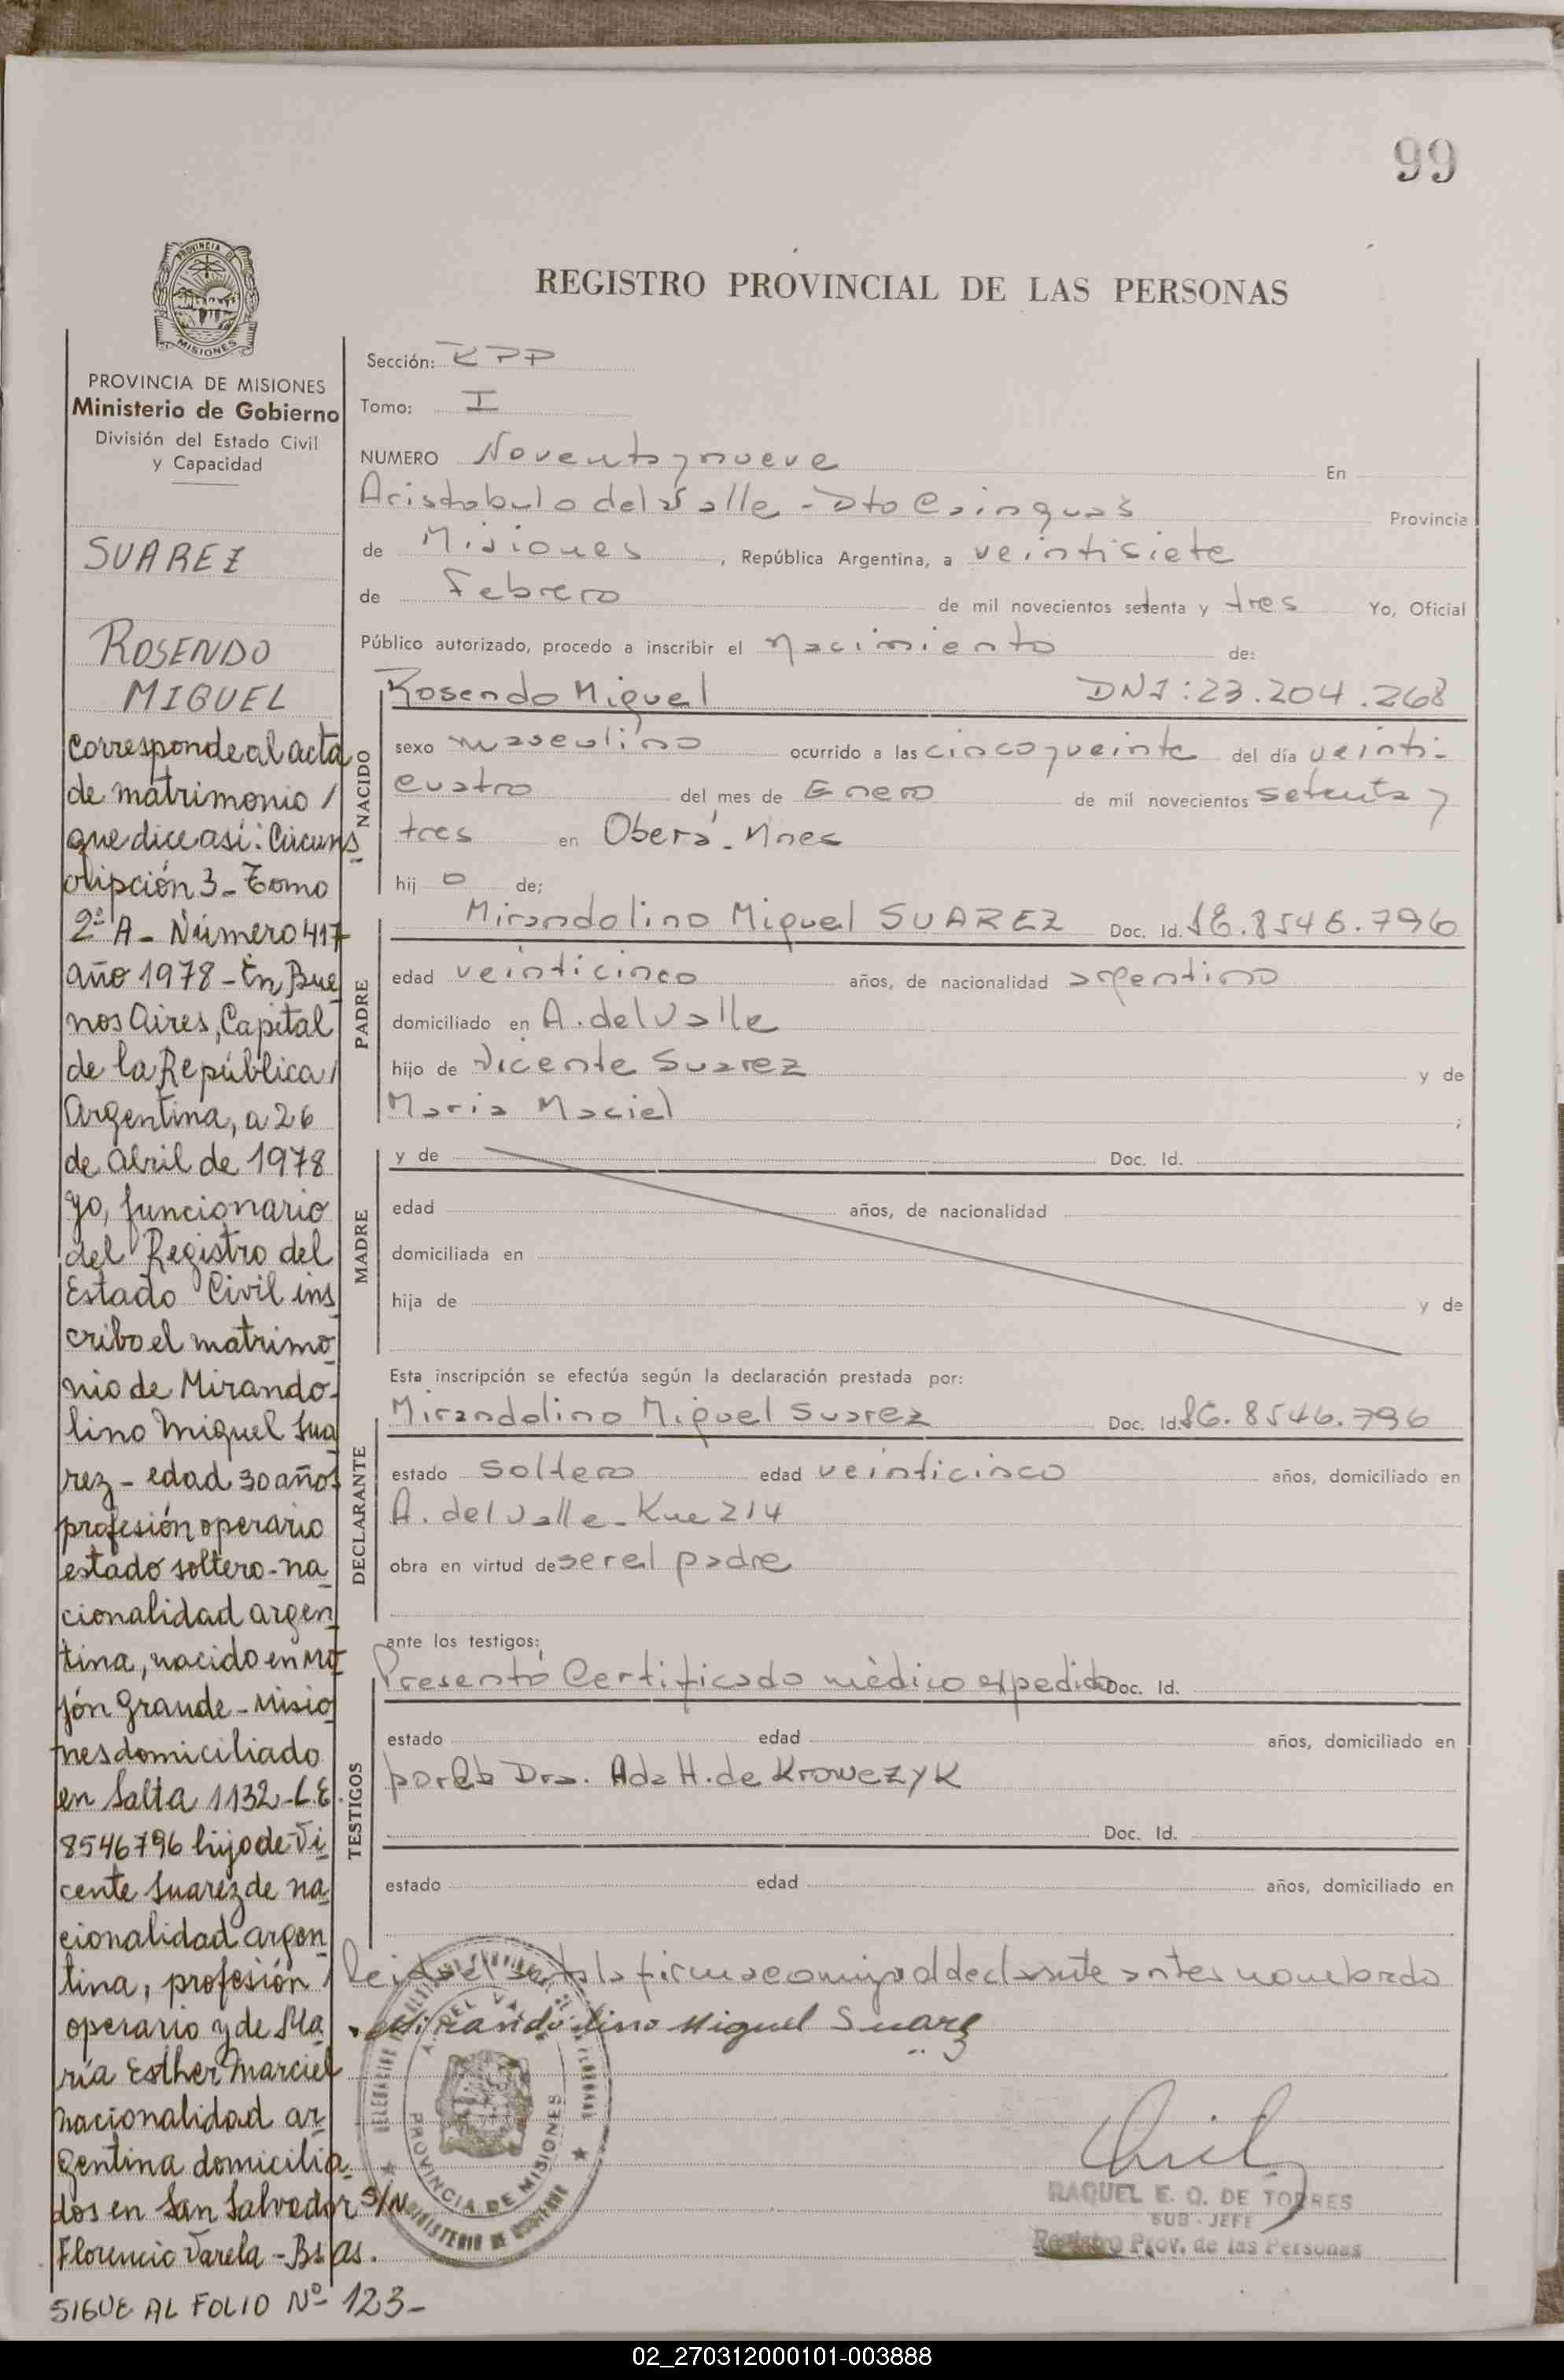 99
PROVINCIA DE
MISIONES
PROVINCIA DE MISIONES
Ministerio de Gobierno
División del Estado Civil
y Capacidad
SUAREZ
ROSENDO
MIGUEL
Corresponde al acta
de matrimonio /
que dice así: Circuns
cripción 3 - Tomo
2º A - Número 417
año 1978 - En Bue
nos Aires, Capital
de la República /
Argentina, a 26
de abril de 1978
yo, funcionario
del Registro del
Estado Civil ins
cribo el matrimo
nio de Mirando-
lino Miguel Sua
rez - edad 30 años
profesión operario
estado soltero - na
cionalidad argen
tina, nacido en Mo
jón Grande - Misio
nes domiciliado
en Salta 1132 - L.E.
8546796 hijo de Vi
cente Suarez de na
cionalidad argen
tina, profesión /
operario y de Ma
ría Esther Marciel
nacionalidad ar
gentina domicilia
dos en San Salvador S/N
Florencio Varela - Bs As.
SIGUE AL FOLIO Nº 123 -
REGISTRO PROVINCIAL DE LAS PERSONAS
Sección:
Tomo: I
NUMERO Noventa y nueve En
Aristobulo del Valle - Dto Cainguas Provincia
de Misiones, República Argentina, a veintisiete
de Febrero de mil novecientos setenta y tres Yo, Oficial
Público autorizado, procedo a inscribir el nacimiento de:
Rosendo Miguel DNI: 23.204.268
NACIDO
sexo masculino ocurrido a las cinco y veinte del día veinti-
cuatro del mes de Enero de mil novecientos setenta y
tres en Oberá - Mnes
hij o de;
PADRE
Mirandolino Miguel SUAREZ Doc. Id. 8546.796
edad veinticinco años, de nacionalidad argentino
domiciliado en A. del Valle
hijo de Vicente Suarez y de
Maria Maciel ;
MADRE
y de Doc. Id.
edad años, de nacionalidad
domiciliada en
hija de y de
Esta inscripción se efectúa según la declaración prestada por:
DECLARANTE
Mirandolino Miguel Suarez Doc. Id. 8546.796
estado soltero edad veinticinco años, domiciliado en
A. del Valle - Km 214
obra en virtud de ser el padre
ante los testigos:
TESTIGOS
Presentó Certificado mèdico expedido Doc. Id.
estado edad años, domiciliado en
por la Dra. Ada H. de Krowczyk
Doc. Id.
estado edad años, domiciliado en
Leida el acta la firma conmigo el declarante antes nombrado
Mirandolino Miguel Suarez
A. DEL VALLE
PROVINCIA DE MISIONES
MINISTERIO DE GOBIERNO
RAQUEL E. O. DE TORRES
SUB - JEFE
Registro Prov. de las Personas
02_270312000101-003888